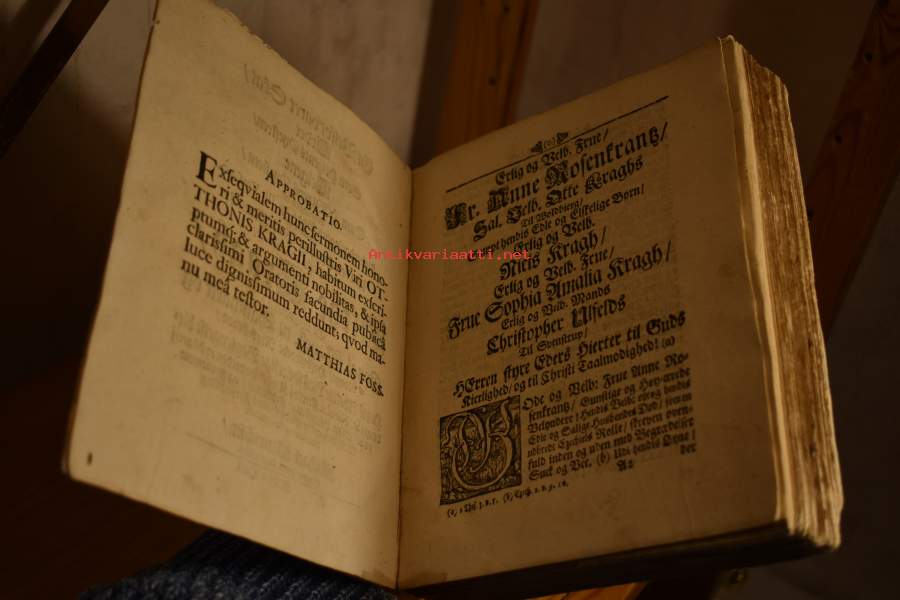 APPROBATIO.
Exseqvialem hunc sermonem hono-
ri & meritis perillustris Viri OT-
THONIS KRAGII, habitum exseri-
ptumq; & argumenti nobilitas, & ipsa
clarissimi Oratoris facundia publicâ
luce dignissimum reddunt, qvod ma-
nu meâ testor.
MATTHIAS FOSS.
Erlig og Velb. Frue/
Fr. Anne Rosenkrantz/
Sal. Velb. Otte Kraghs
Til Woldbierg/
Sampt hendis Edle og Elskelige Børn/
Erlig og Velb.
Niels Kragh/
Erlig og Velb. Frue/
Frue Sophia Amalia Kragh/
Erlig og Velb. Mands
Christopher Ulfelds
Til Svenstrup/
HErren styre Eders Hierter til Guds
Kierlighed/ og til Christi Taalmodighed! (a)
GOde og Velb: Frue Anne Ro-
senkrantz/ Gunstige og Høy-ærede
Velyndere! Hendis Velb:
Edle og Salige Husbondes Død/ som en
udbredt Ezechiels Rolle/ skreven oven-
fuld inden og uden med Begrædelser
Suck og Vee, (b) Udi hendis Øyne/
A2 der
Antikvariaatti.net